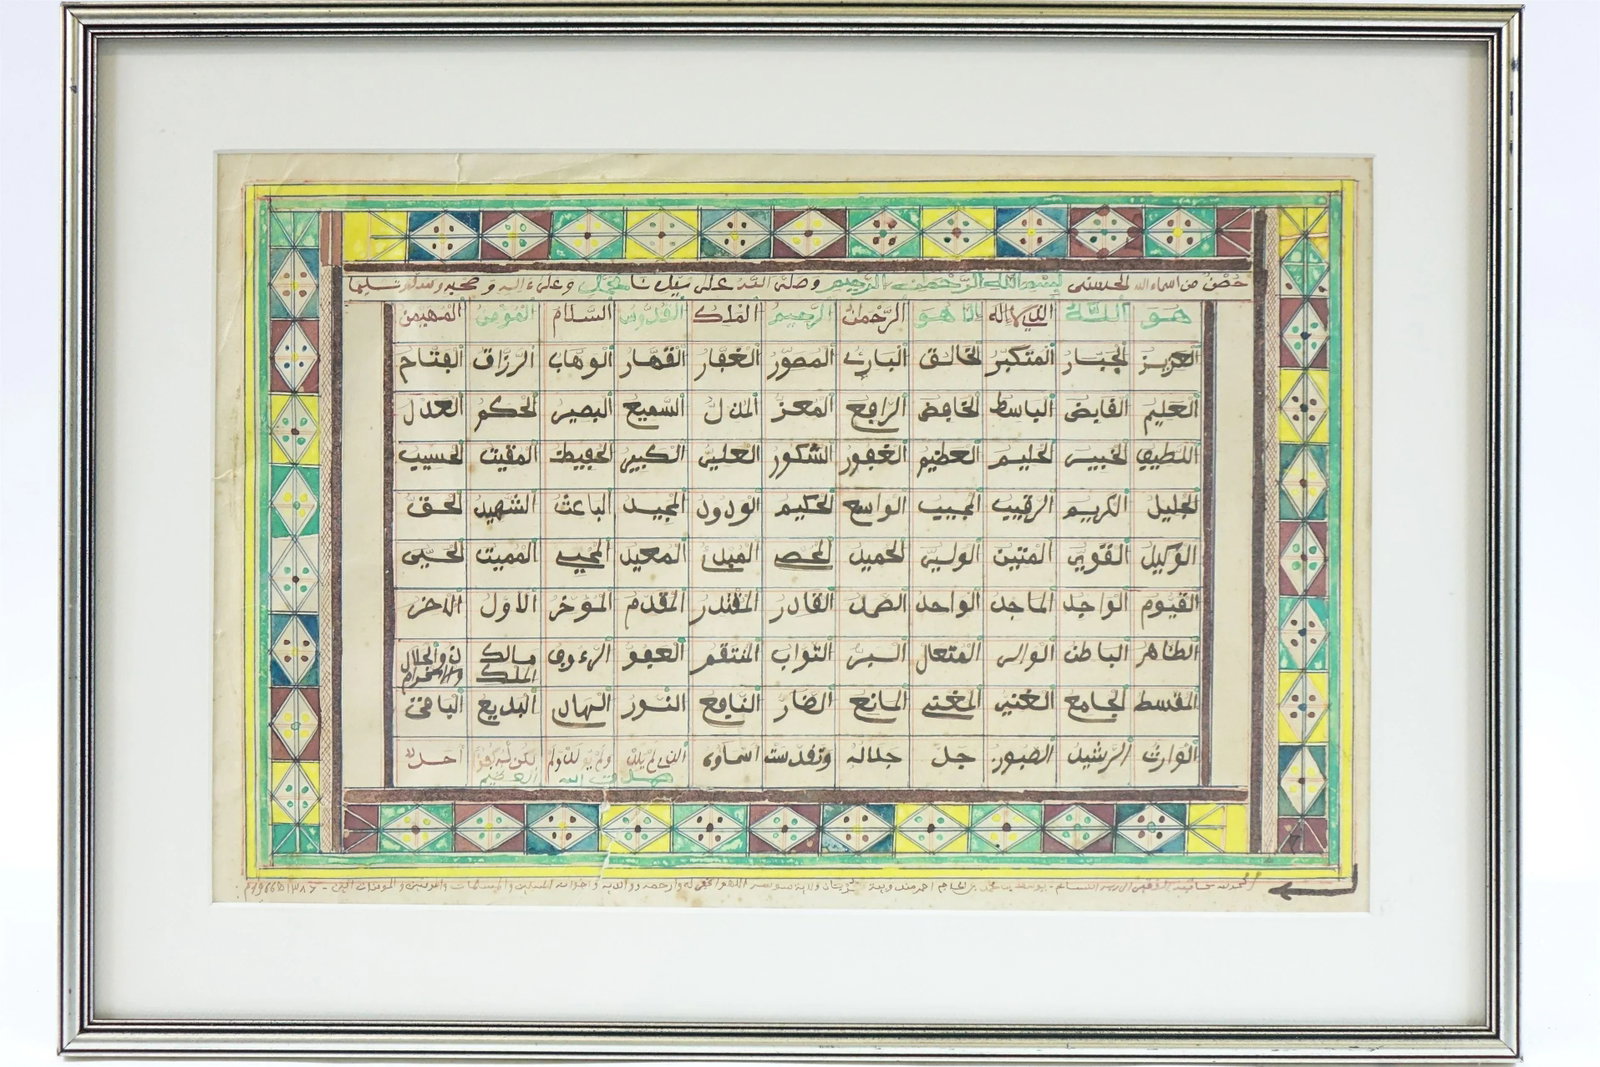 حصن من اسماء الله الحسنى بسم الله الرحمن الرحيم وصلى الله على سيدنا محمد وعلى ءاله وصحبه وسلم تسليما
هو الله الذي لا اله الا هو الرحمن الرحيم الملك القدوس السلام المومن المهيمن
العزيز الجبار المتكبر الخالق البارئ المصور الغفار القهار الوهاب الرزاق الفتاح
العليم القابض الباسط الخافض الرافع المعز المذل السميع البصير الحكم العدل
اللطيف الخبير الحليم العظيم الغفور الشكور العلي الكبير الحفيظ المقيت الحسيب
الجليل الكريم الرقيب المجيب الواسع الحكيم الودود المجيد الباعث الشهيد الحق
الوكيل القوي المتين الولي الحميد المحصي المبدئ المعيد المحيي المميت الحي
القيوم الواجد الماجد الواحد الصمد القادر المقتدر المقدم المؤخر الاول الاخر
الظاهر الباطن الوالي المتعال البر التواب المنتقم العفو الرءوف مالك الملك ذو الجلال والاكرام
المقسط الجامع الغني المغني المانع الضار النافع النور الهادي البديع الباقي
الوارث الرشيد الصبور جل جلاله وتقدست اسماؤه الذي لم يلد ولم يولد ولم يكن له كفؤا احد
صدق الله العظيم
الحمد لله